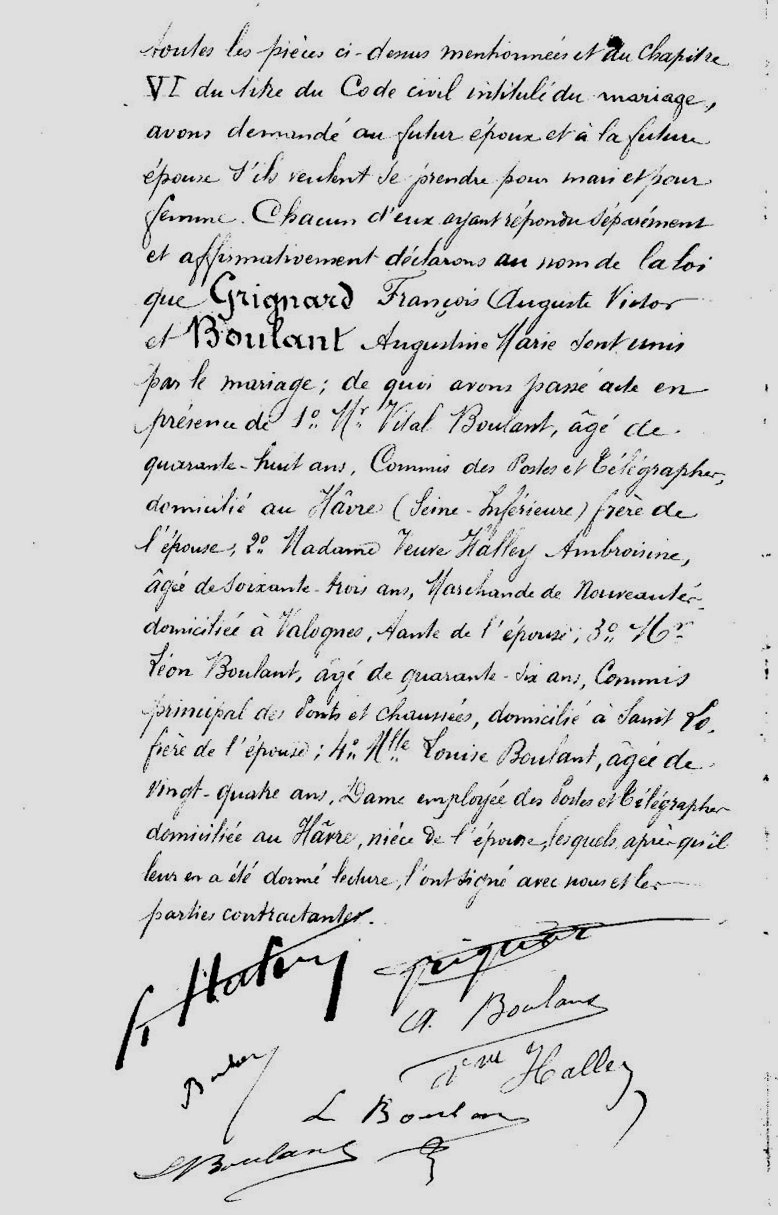 toutes les pièces ci-dessus mentionnées et du Chapitre
VI du titre du Code civil intitulé du mariage,
avons demandé au futur époux et à la future
épouse s'ils veulent se prendre pour mari et pour
femme. Chacun d'eux ayant répondu séparément
et affirmativement déclarons au nom de la loi
que Grignard François Auguste Victor
et Boulant Augustine Marie sont unis
par le mariage ; de quoi avons passé acte en
présence de 1º. Mr Vital Boulant, âgé de
quarante-huit ans, Commis des Postes et Télégraphes,
domicilié au Hâvre (Seine-Inférieure) frère de
l'épouse ; 2º. Madame Veuve Halley Ambroisine,
âgée de soixante-trois ans, Marchande de Nouveautés
domiciliée à Valognes, tante de l'épouse ; 3º. Mr
Léon Boulant, âgé de quarante-six ans, Commis
principal des Ponts et chaussées, domicilié à Saint Lo,
frère de l'épouse ; 4º. Mlle Louise Boulant, âgée de
vingt-quatre ans, Dame employée des Postes et Télégraphes
domiciliée au Hâvre, nièce de l'épouse, lesquels, après qu'il
leur en a été donné lecture, l'ont signé avec nous et les
parties contractantes.
Grignar
A. Boulant
Vve Halley
L Boulan
Boulant